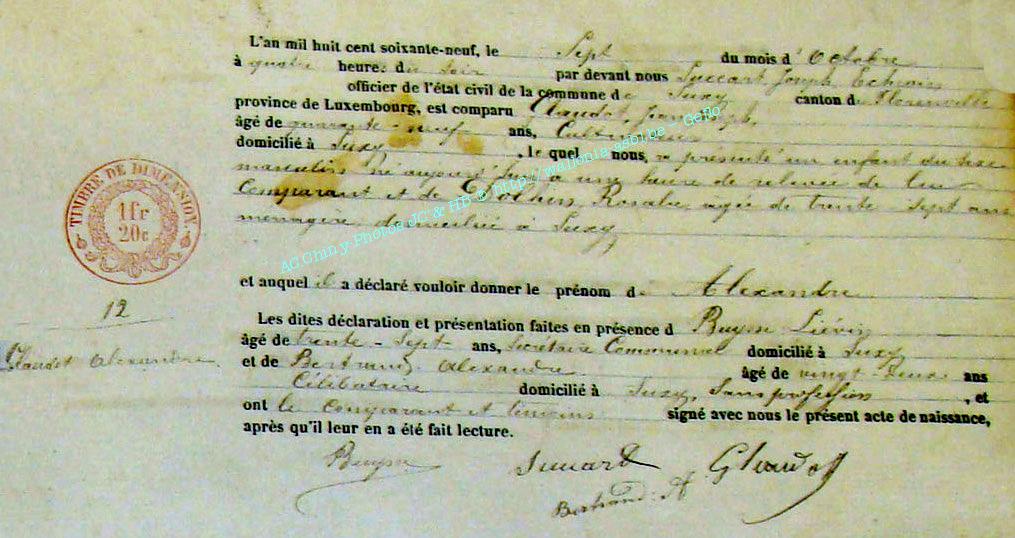 L'an mil huit cent soixante-neuf, le Sept du mois d'Octobre
à quatre heures du soir par devant nous Joseph
officier de l'état civil de la commune de Suxy canton de Florenville
province de Luxembourg, est comparu Claudot, Jean Joseph,
âgé de quarante-neuf ans, Cultivateur
domicilié à Suxy, le quel nous, a présenté un enfant du sexe
masculin né aujourd'hui à une heure de relevée de lui
Comparant et de Rosalie, agée de trente sept ans
ménagère domiciliée à Suxy
TIMBRE DE DIMENSION
1 fr
20 c
AC Chiny Photos JC & HB © http://wallonia.asbl.be - GeRo
et auquel il a déclaré vouloir donner le prénom d Alexandre
12
Claudot Alexandre
Les dites déclaration et présentation faites en présence d Buysse Liévin
âgé de trente-Sept ans, Secrétaire Communal domicilié à Suxy
et de Bertrand Alexandre âgé de vingt deux ans
Célibataire domicilié à Suxy, Sans profession, et
ont le Comparant et témoins signé avec nous le présent acte de naissance,
après qu'il leur en a été fait lecture.
Buysse Claudot
Bertrand A